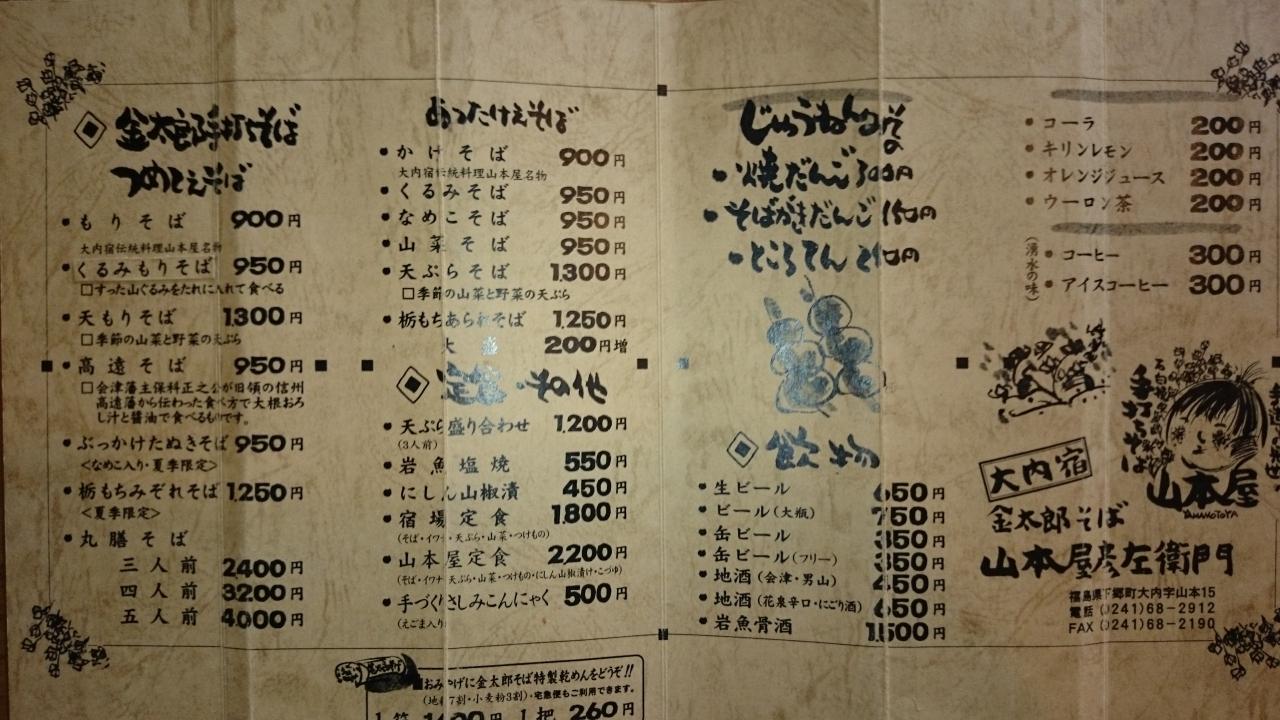 金太郎手打ちそば
つめてえそば
もりそば 900円
大内宿伝統料理山本屋名物
くるみもりそば 950円
□すった山ぐるみをたれに入れて食べる
天もりそば 1,300円
□季節の山菜と野菜の天ぷら
高遠そば 950円
□会津藩主保科正之公が旧領の信州
高遠藩から伝わった食べ方で大根おろ
し汁と醤油で食べるものです。
ぶっかけたぬきそば 950円
<なめこ入り・夏季限定>
栃もちみぞれそば 1,250円
<夏季限定>
丸膳そば
三人前 2400円
四人前 3200円
五人前 4000円
あったけえそば
かけそば 900円
大内宿伝統料理山本屋名物
くるみそば 950円
なめこそば 950円
山菜そば 950円
天ぷらそば 1,300円
□季節の山菜と野菜の天ぷら
栃もちあられそば 1,250円
大盛 200円増
定食・その他
天ぷら盛り合わせ 1,200円
(3人前)
岩魚塩焼 550円
にしん山椒漬 450円
宿場定食 1,800円
(そば・イワナ・天ぷら・山菜・つけもの)
山本屋定食 2,200円
(そば・イワナ・天ぷら・山菜・つけもの・にしん山椒漬け・こづゆ)
手づくりさしみこんにゃく 500円
(えごま入り)
おみやげに金太郎そば特製乾めんをどうぞ!!
(地粉7割・小麦粉3割)・宅急便もご利用できます。
1把 260円
じゅうねんみその
焼だんご 300円
そばがきだんご 150円
ところてん 210円
飲物
生ビール 650円
ビール(大瓶) 750円
缶ビール 350円
缶ビール(フリー) 350円
地酒(会津・男山) 450円
地酒(花泉辛口・にごり酒) 650円
岩魚骨酒 1,500円
コーラ 200円
キリンレモン 200円
オレンジジュース 200円
ウーロン茶 200円
(湧水の味)
コーヒー 300円
アイスコーヒー 300円
手打ちそば
山本屋
YAMAMOTOYA
大内宿
金太郎そば
山本屋彦左衛門
福島県下郷町大内字山本15
電話 (0241)68-2912
FAX (0241)68-2190